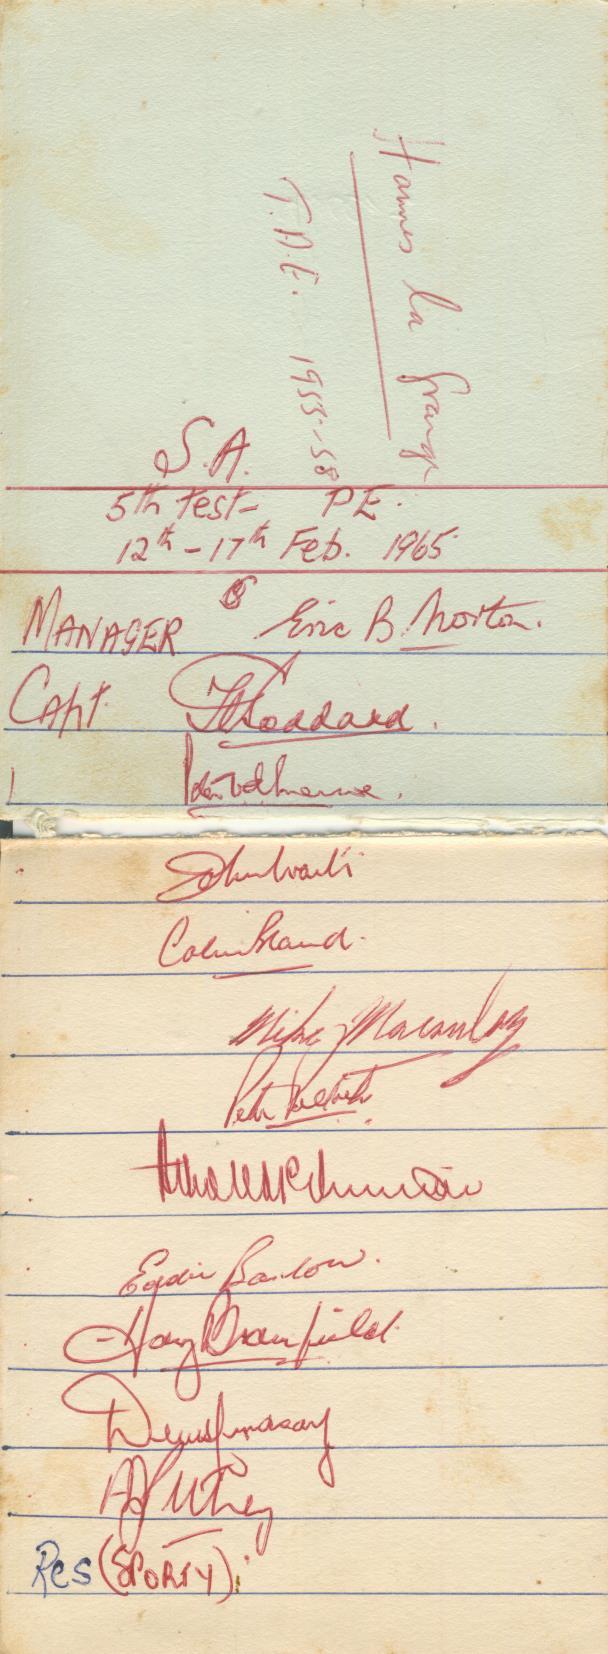 Hannes la Grange
T.A.E. 1953-58
S.A.
5th test - PE.
12th - 17th Feb. 1965
MANAGER Eric B. Norton.
Capt. T Goddard.
John Waite
Colin Bland.
Mike J Macaulay
Peter Pollock
Atholl McKinnon
Eddie Barlow.
Harry Bromfield.
Denis Lindsay
Res (SPORTY).